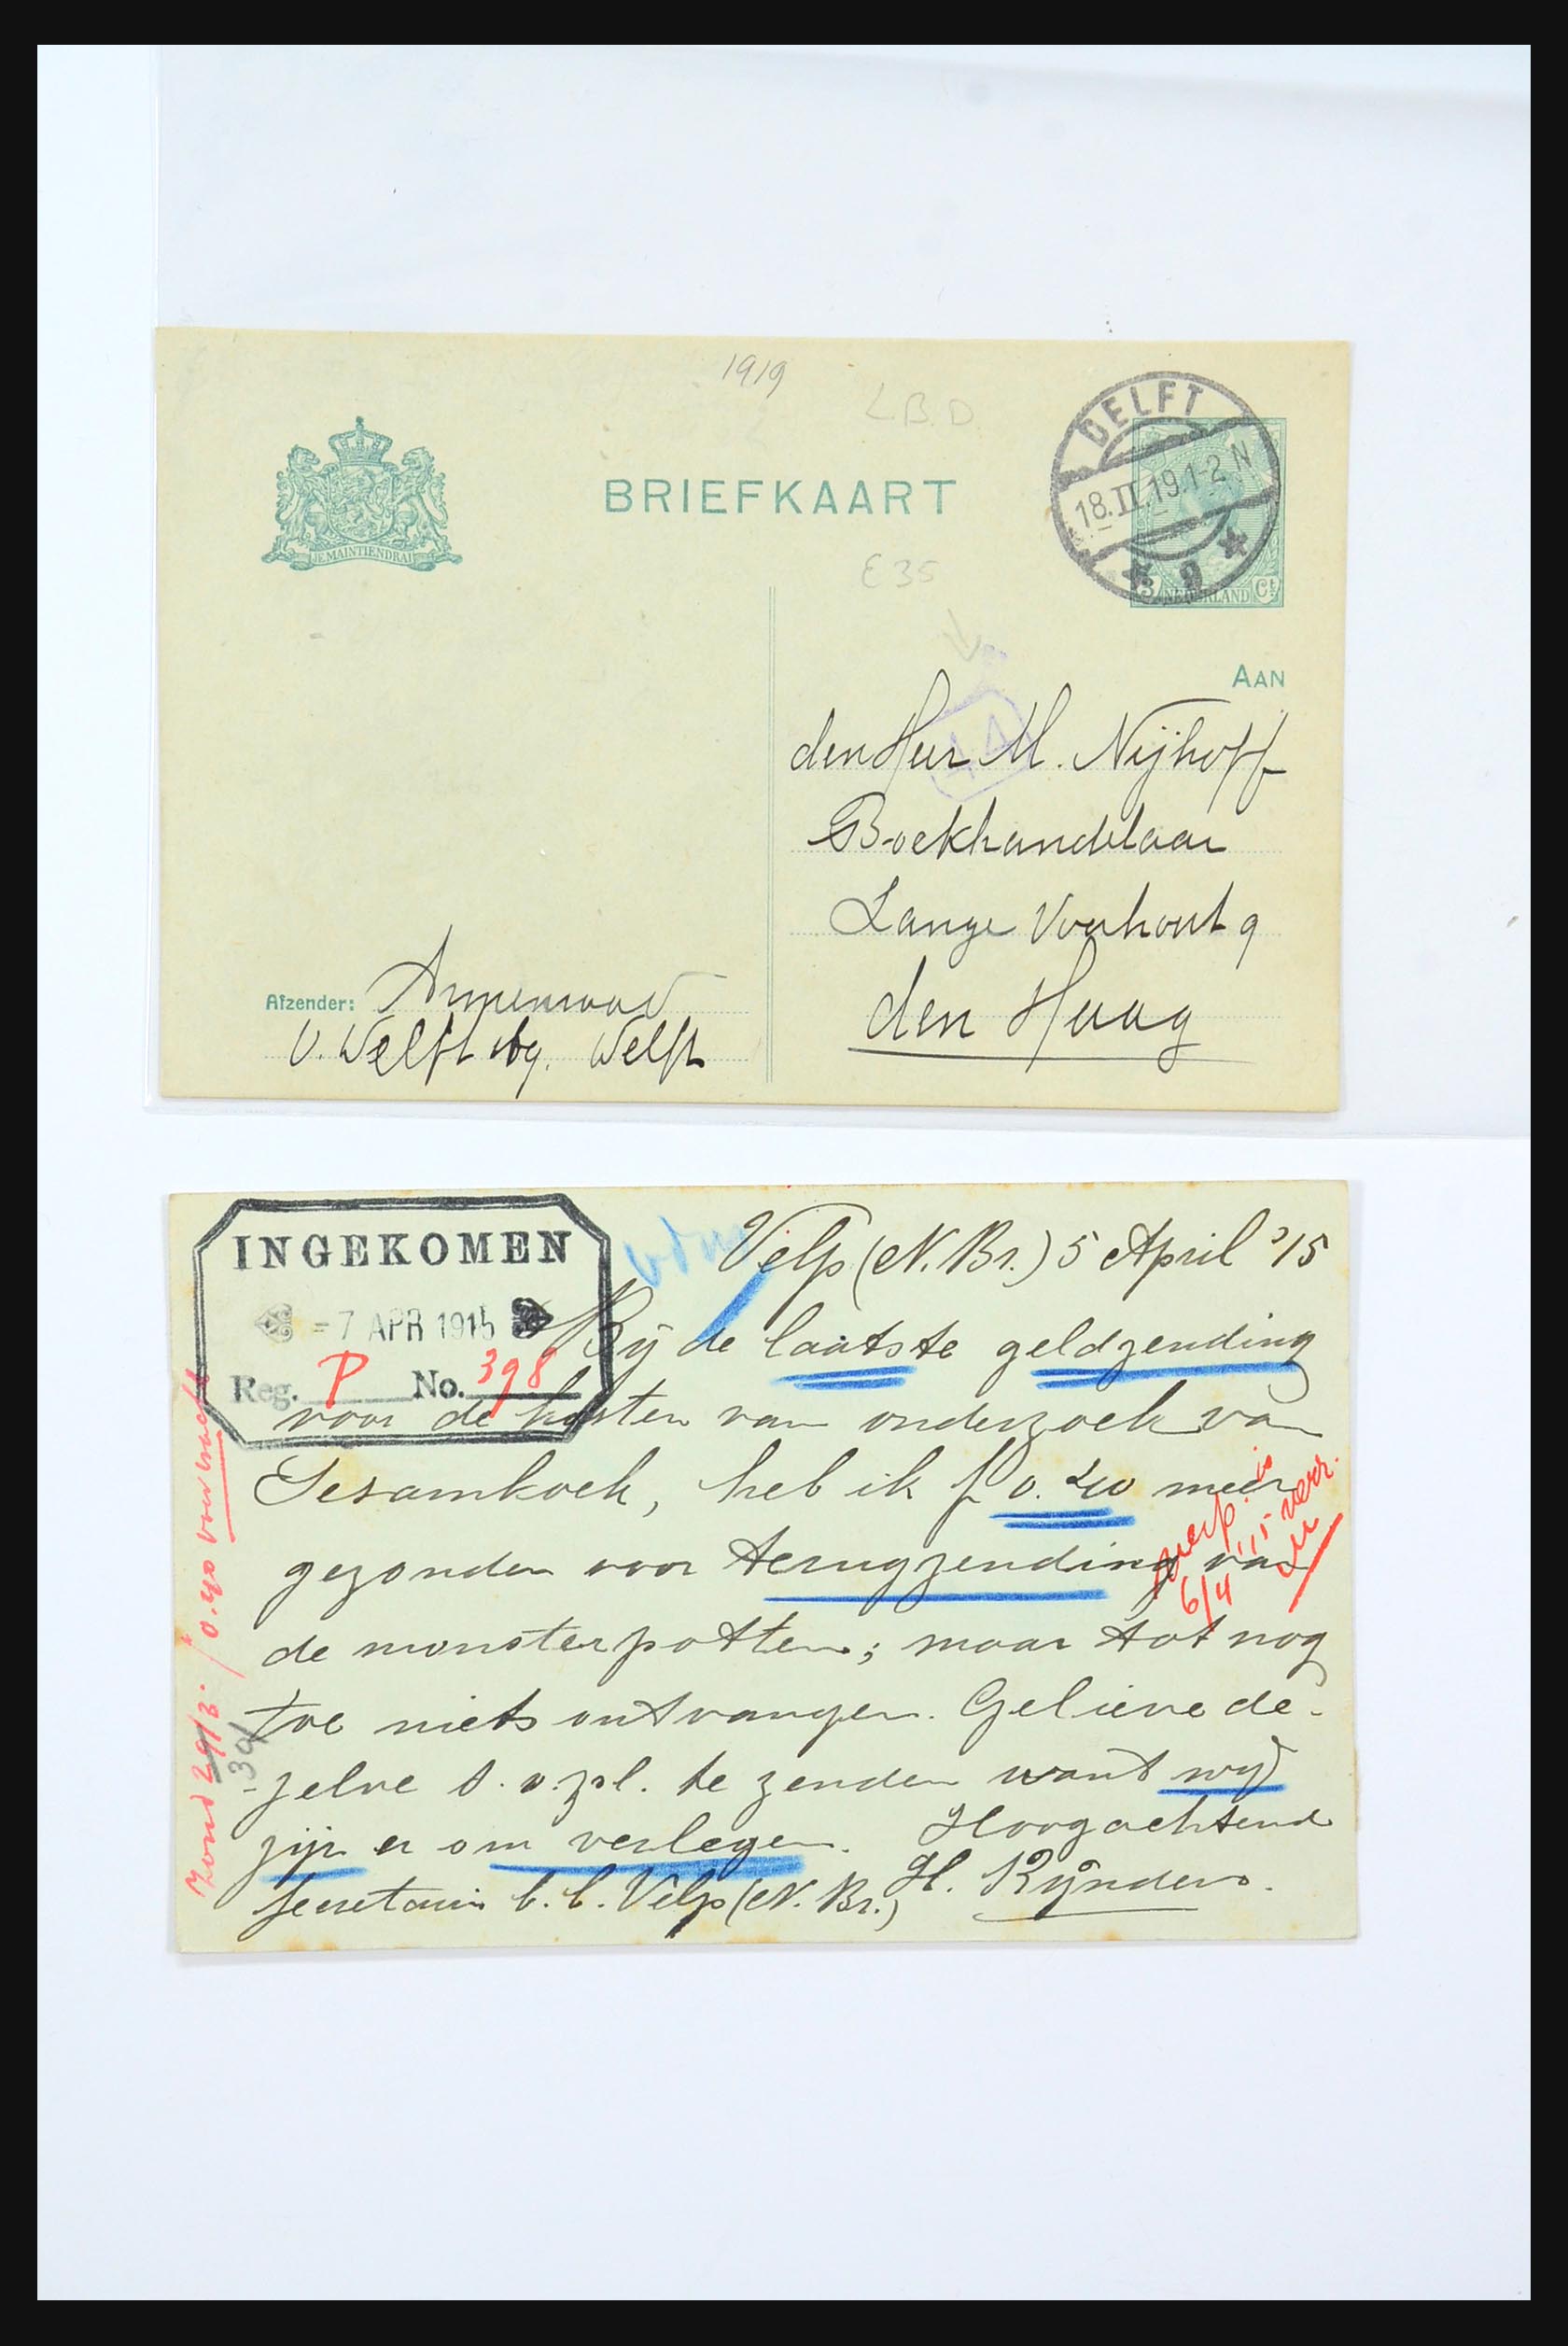 1919
L.B.D
DELFT
18.II.19.1-2 N
9
JE MAINTIENDRAI
BRIEFKAART
3 NEDERLAND Ct
E35
AAN
den Heer M. Nijhoff
Boekhandelaar
Lange Voorhout 9
den Haag
Afzender:
V. Delft Delft
INGEKOMEN
= 7 APR 1915
Reg. P No. 398
Velp (N. Br.) 5 April '15
Bij de laatste geldzending
voor de kosten van onderzoek van
Sesamkoek, heb ik f 0.40 meer
gezonden voor terugzending van
de monsterpotten; maar tot nog
toe niets ontvangen. Gelieve de-
-zelve s.v.pl. te zenden want wij
zijn er om verlegen. Hoogachtend
Secretaris b. b. Velp (N. Br.) H. Rijnders.
6/4
zond 29/3. f 0.40
30